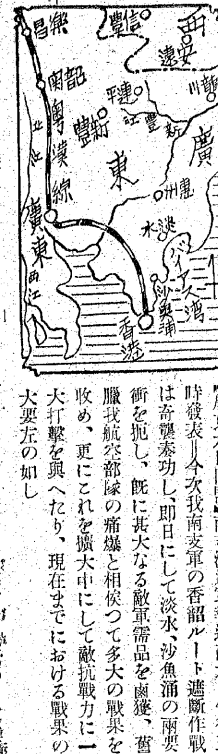 樂昌
信豐
安遠
西
龍川
南韶
連平
新豐
新豐江
粤漢線
北江
東
廣
惠州
淡水
バイアス湾
廣東
西江
沙魚涌
香港
時發表＝今次我南支軍の香韶ルート遮斷作戰
は奇襲奏功し、即日にして淡水、沙魚涌の兩要
衝を扼し、既に甚大なる敵軍需品を鹵獲、舊
臘我航空部隊の痛爆と相俟つて多大の戰果を
收め、更にこれを擴大中にして敵抗戰力に一
大打擊を與へたり、現在までにおける戰果の
大要左の如し